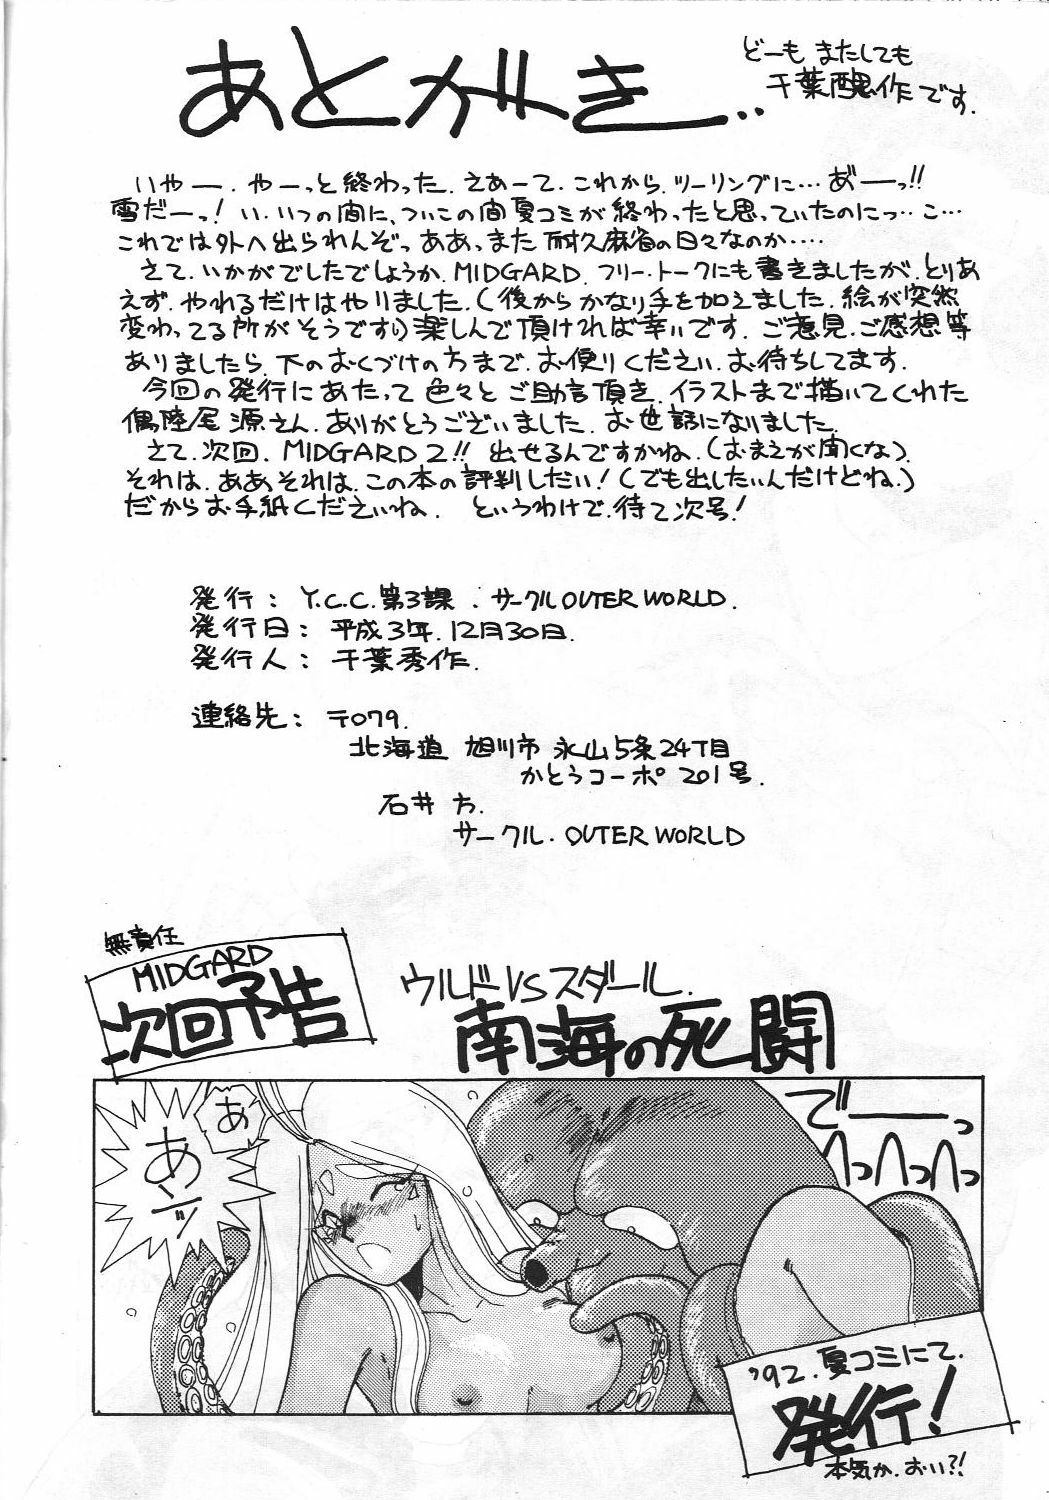 あとがき..
どーも またしても
千葉醜作です.
いやー. やーっと終わった. さあーて. これから. ツーリングに… あ゛ーっ!!
雪だーっ! い. いつの間に、ついこの間夏コミが終わったと思っていたのにっ‥ こ…
これでは外へ出られんぞっ ああ、また 耐久麻雀の日々なのか‥‥
さて. いかがでしたでしょうか. MIDGARD. フリー・トークにも書きましたが. とりあ
えず. やれるだけはやりました.(後からかなり手を加えました. 絵が突然
変わってる所がそうです)楽しんで頂ければ幸いです. ご意見. ご感想等
ありましたら. 下のおくづけの方まで. お便りください. お待ちしてます.
今回の発行にあたって色々とご助言頂き. イラストまで描いてくれた
偶陸尾 源さん. ありがとうございました. お世話になりました.
さて. 次回. MIDGARD 2!! 出せるんですかね.(おまえが聞くな)
それは. ああそれは. この本の評判しだい!(でも出したいんだけどね.)
だからお手紙くださいね. というわけで. 待て次号!
発行: Y.C.C.第3課. サークルOUTER WORLD.
発行日: 平成3年. 12月30日.
発行人: 千葉秀作.
連絡先: 〒079.
北海道 旭川市 永山5条24丁目
かとうコーポ 201号.
石井 方.
サークル. OUTER WORLD
無責任
MIDGARD
次回予告
ウルドVSスダール.
南海の死闘
あ
あッ゛
でーーっ
へっへっへっ
'92. 夏コミにて.
発行!
本気か. おい?!